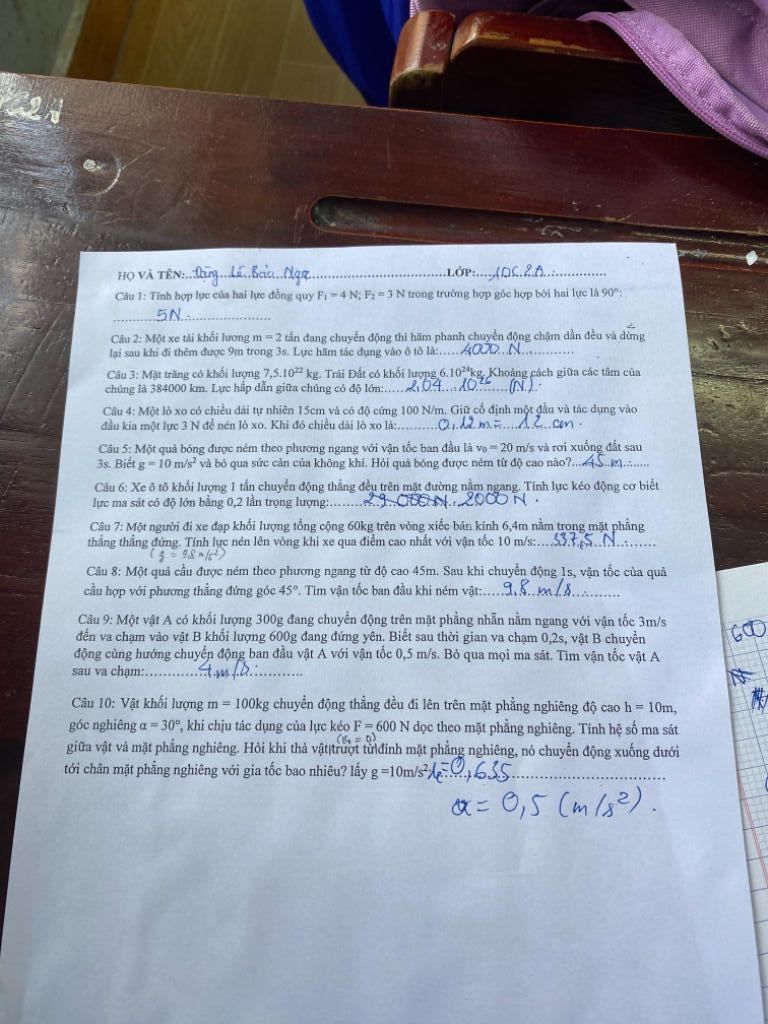 HỌ VÀ TÊN:..Đặng..Lê..Bảo..Nga...........................................LỚP:....10C2A.............
Câu 1: Tính hợp lực của hai lực đồng quy F₁ = 4 N; F₂ = 3 N trong trường hợp góc hợp bởi hai lực là 90°:
............5N......................
Câu 2: Một xe tải khối lương m = 2 tấn đang chuyển động thì hãm phanh chuyển động chậm dần đều và dừng
lại sau khi đi thêm được 9m trong 3s. Lực hãm tác dụng vào ô tô là:......4000 N..............
Câu 3: Mặt trăng có khối lượng 7,5.10²² kg. Trái Đất có khối lượng 6.10²⁴kg. Khoảng cách giữa các tâm của
chúng là 384000 km. Lực hấp dẫn giữa chúng có độ lớn:......2,04 . 10²⁶ (N).
Câu 4: Một lò xo có chiều dài tự nhiên 15cm và có độ cứng 100 N/m. Giữ cố định một đầu và tác dụng vào
đầu kia một lực 3 N để nén lò xo. Khi đó chiều dài lò xo là:.........0,12m=...12 cm.
Câu 5: Một quả bóng được ném theo phương ngang với vận tốc ban đầu là v₀ = 20 m/s và rơi xuống đất sau
3s. Biết g = 10 m/s² và bỏ qua sức cản của không khí. Hỏi quả bóng được ném từ độ cao nào?....45 m.......
Câu 6: Xe ô tô khối lượng 1 tấn chuyển động thẳng đều trên mặt đường nằm ngang. Tính lực kéo động cơ biết
lực ma sát có độ lớn bằng 0,2 lần trọng lượng:........2000 N.
Câu 7: Một người đi xe đạp khối lượng tổng cộng 60kg trên vòng xiếc bán kính 6,4m nằm trong mặt phẳng
thẳng thẳng đứng. Tính lực nén lên vòng khi xe qua điểm cao nhất với vận tốc 10 m/s:....337,5 N........
(g = 9,8 m/s²)
Câu 8: Một quả cầu được ném theo phương ngang từ độ cao 45m. Sau khi chuyển động 1s, vận tốc của quả
cầu hợp với phương thẳng đứng góc 45°. Tìm vận tốc ban đầu khi ném vật:......9,8 m/s............
Câu 9: Một vật A có khối lượng 300g đang chuyển động trên mặt phẳng nhẵn nằm ngang với vận tốc 3m/s
đến va chạm vào vật B khối lượng 600g đang đứng yên. Biết sau thời gian va chạm 0,2s, vật B chuyển
động cùng hướng chuyển động ban đầu vật A với vận tốc 0,5 m/s. Bỏ qua mọi ma sát. Tìm vận tốc vật A
sau va chạm:............4m/s............
Câu 10: Vật khối lượng m = 100kg chuyển động thẳng đều đi lên trên mặt phẳng nghiêng độ cao h = 10m,
góc nghiêng α = 30°, khi chịu tác dụng của lực kéo F = 600 N dọc theo mặt phẳng nghiêng. Tính hệ số ma sát
(v₀ = 0)
giữa vật và mặt phẳng nghiêng. Hỏi khi thả vật trượt từ đỉnh mặt phẳng nghiêng, nó chuyển động xuống dưới
tới chân mặt phẳng nghiêng với gia tốc bao nhiêu? lấy g =10m/s² =0,635
a = 0,5 (m/s²).
600